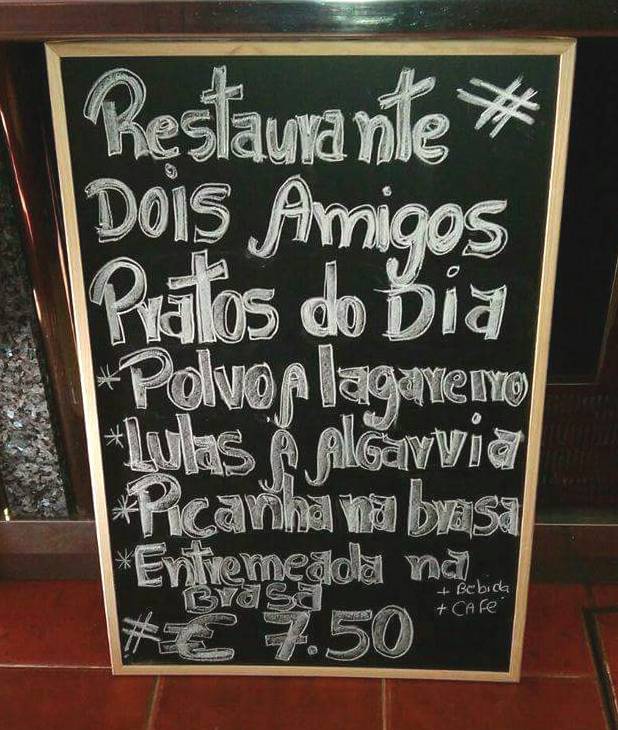 Restaurante #
Dois Amigos
Pratos do Dia
* Polvo A lagareiro
* Lulas À Algarvia
* Picanha na brasa
* Entremeada na
Brasa
+ Bebida
+ CAFÉ
# € 7.50